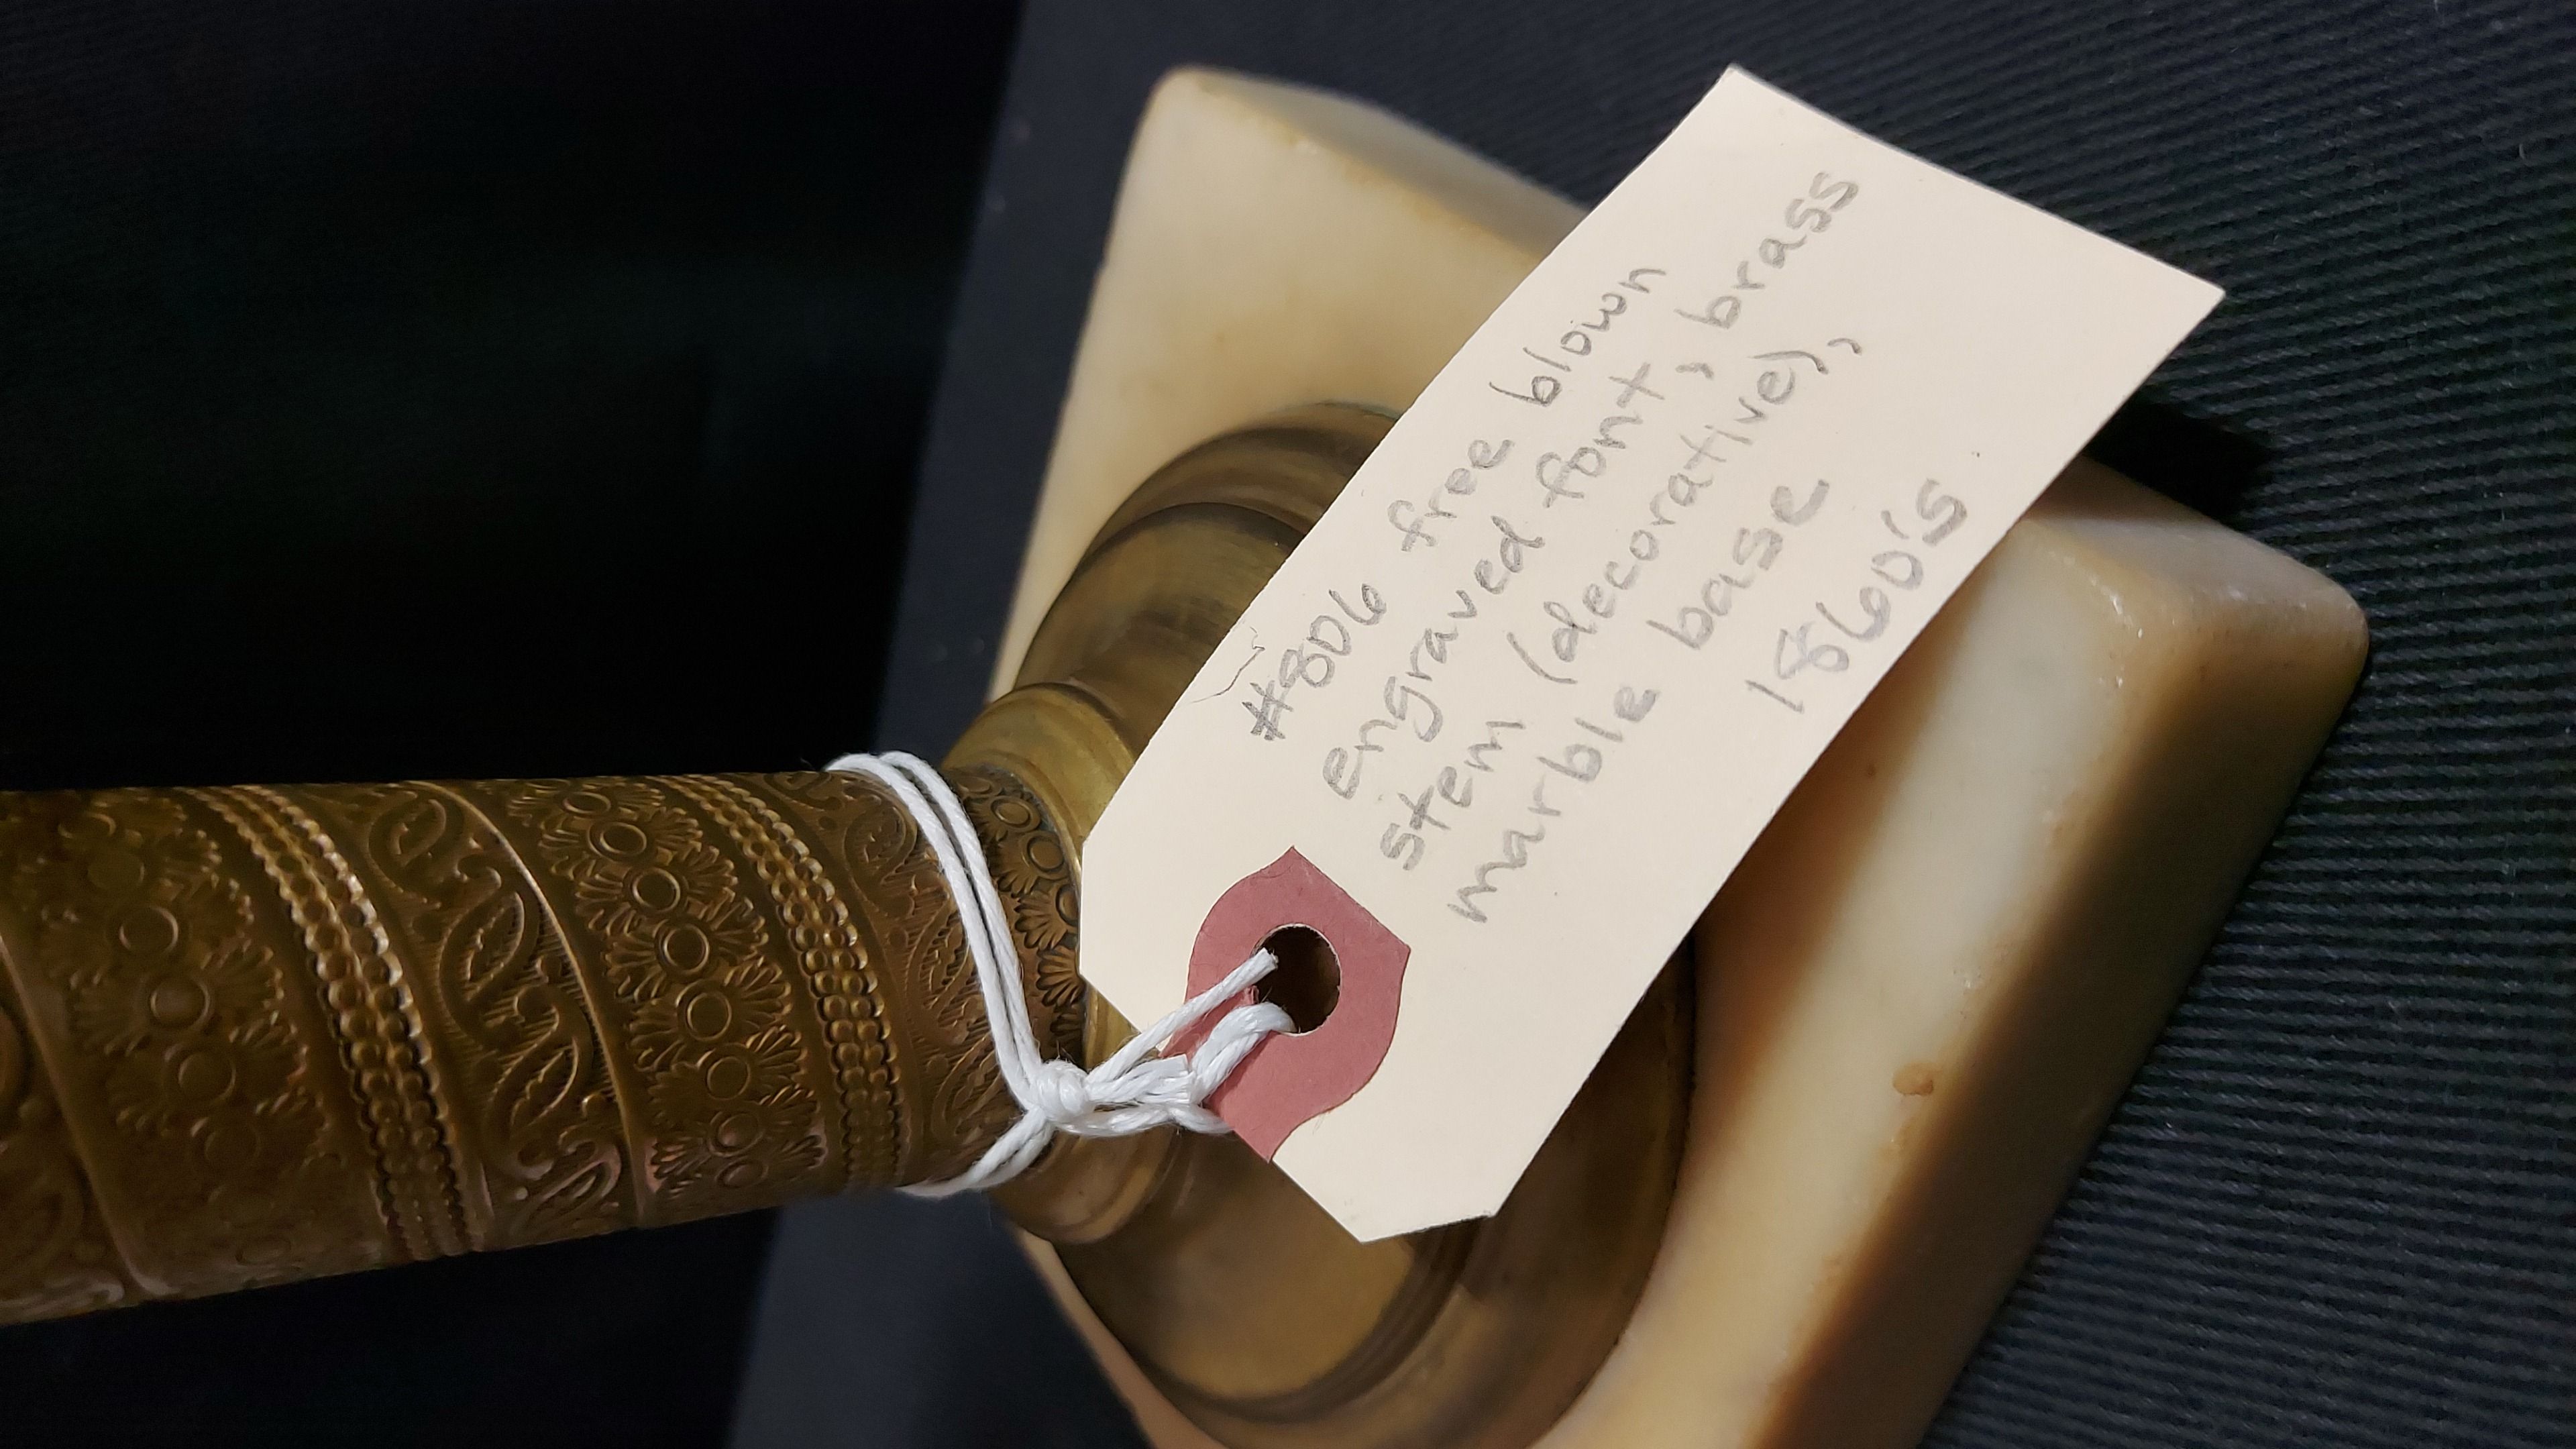 #806 free blown
engraved font, brass
stem (decorative),
marble base
1860's